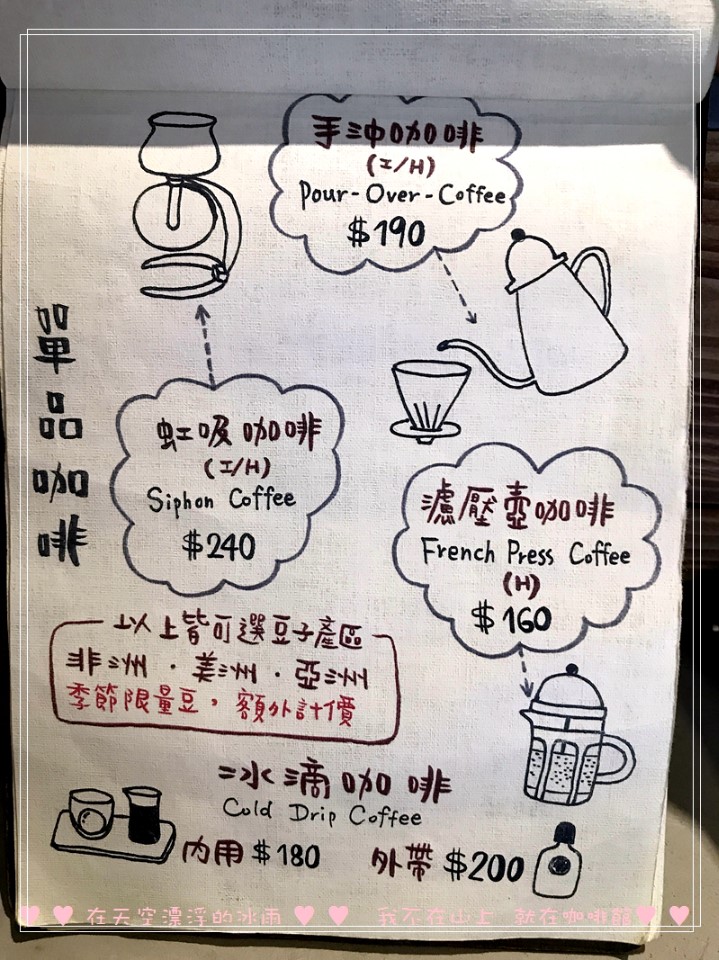 單品咖啡
手沖咖啡
(I/H)
Pour-Over-Coffee
$190
虹吸咖啡
(I/H)
Siphon Coffee
$240
濾壓壺咖啡
French Press Coffee
(H)
$160
以上皆可選豆子產區
非洲·美洲·亞洲
季節限量豆,額外計價
冰滴咖啡
Cold Drip Coffee
內用 $180 外帶 $200
♥ ♥ 在天空漂浮的冰雨 ♥ ♥ 我不在山上 就在咖啡館 ♥ ♥